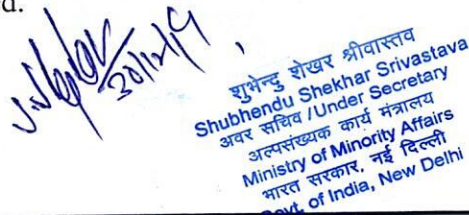 d.
30/12/19
शुभेन्दु शेखर श्रीवास्तव
Shubhendu Shekhar Srivastava
अवर सचिव /Under Secretary
अल्पसंख्यक कार्य मंत्रालय
Ministry of Minority Affairs
भारत सरकार, नई दिल्ली
Govt. of India, New Delhi